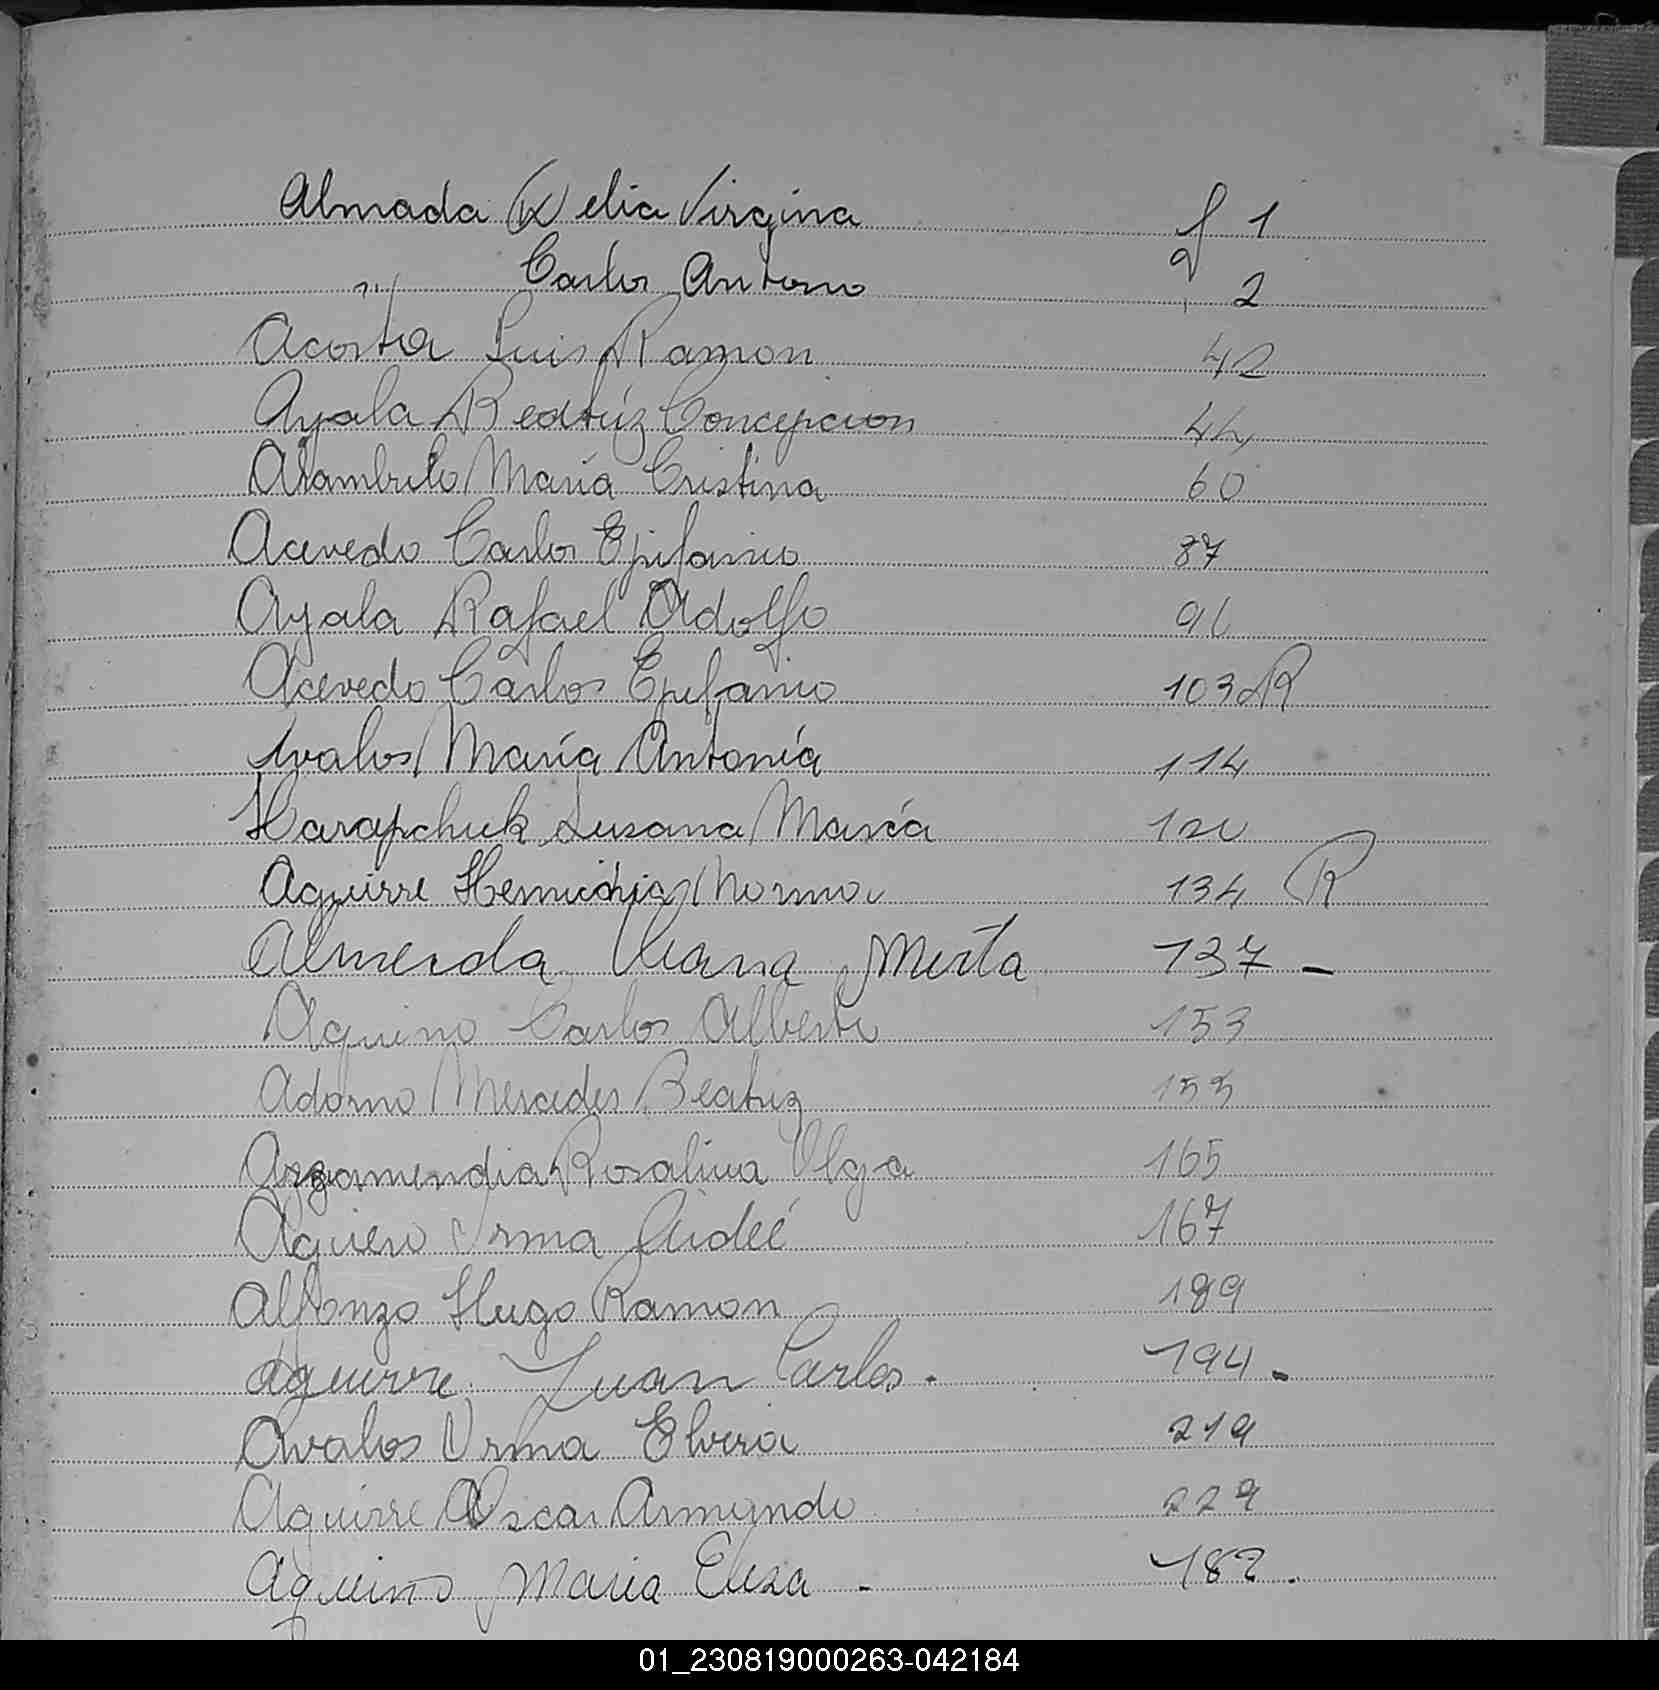 Almada Delia Virgina f 1
" Carlos Antonio f 2
Acosta Luis Ramon 42
Ayala Beatriz Concepcion 44
Arambulo María Cristina 60
Acevedo Carlos Epifanio 87
Ayala Rafael Adolfo 91
Acevedo Carlos Epifanio 103 R
Avalos María Antonia 114
Harapchuk Susana María
Aguirre Norma 134 R
Almeida Mirta 137 -
Aquino Carlos Alberto 153
Adorno Mercedes Beatriz 155
Azamendia Rosalina Olga 165
Aguero Irma Aideé 167
Alfonzo Hugo Ramon 189
Aguirre Juan Carlos. 194 -
Avalos Irma Elvira 219
Aguirre Oscar Armando 229
Aquino Maria Elisa - 182.
01_230819000263-042184